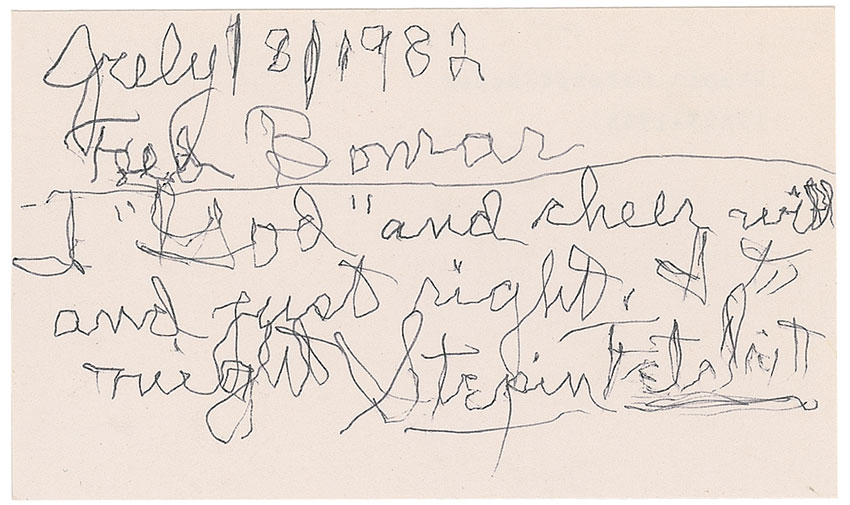 July 8, 1982
Ted Bonrar
I "God" and cheer with
and just right. I
right Stepin Fetchit